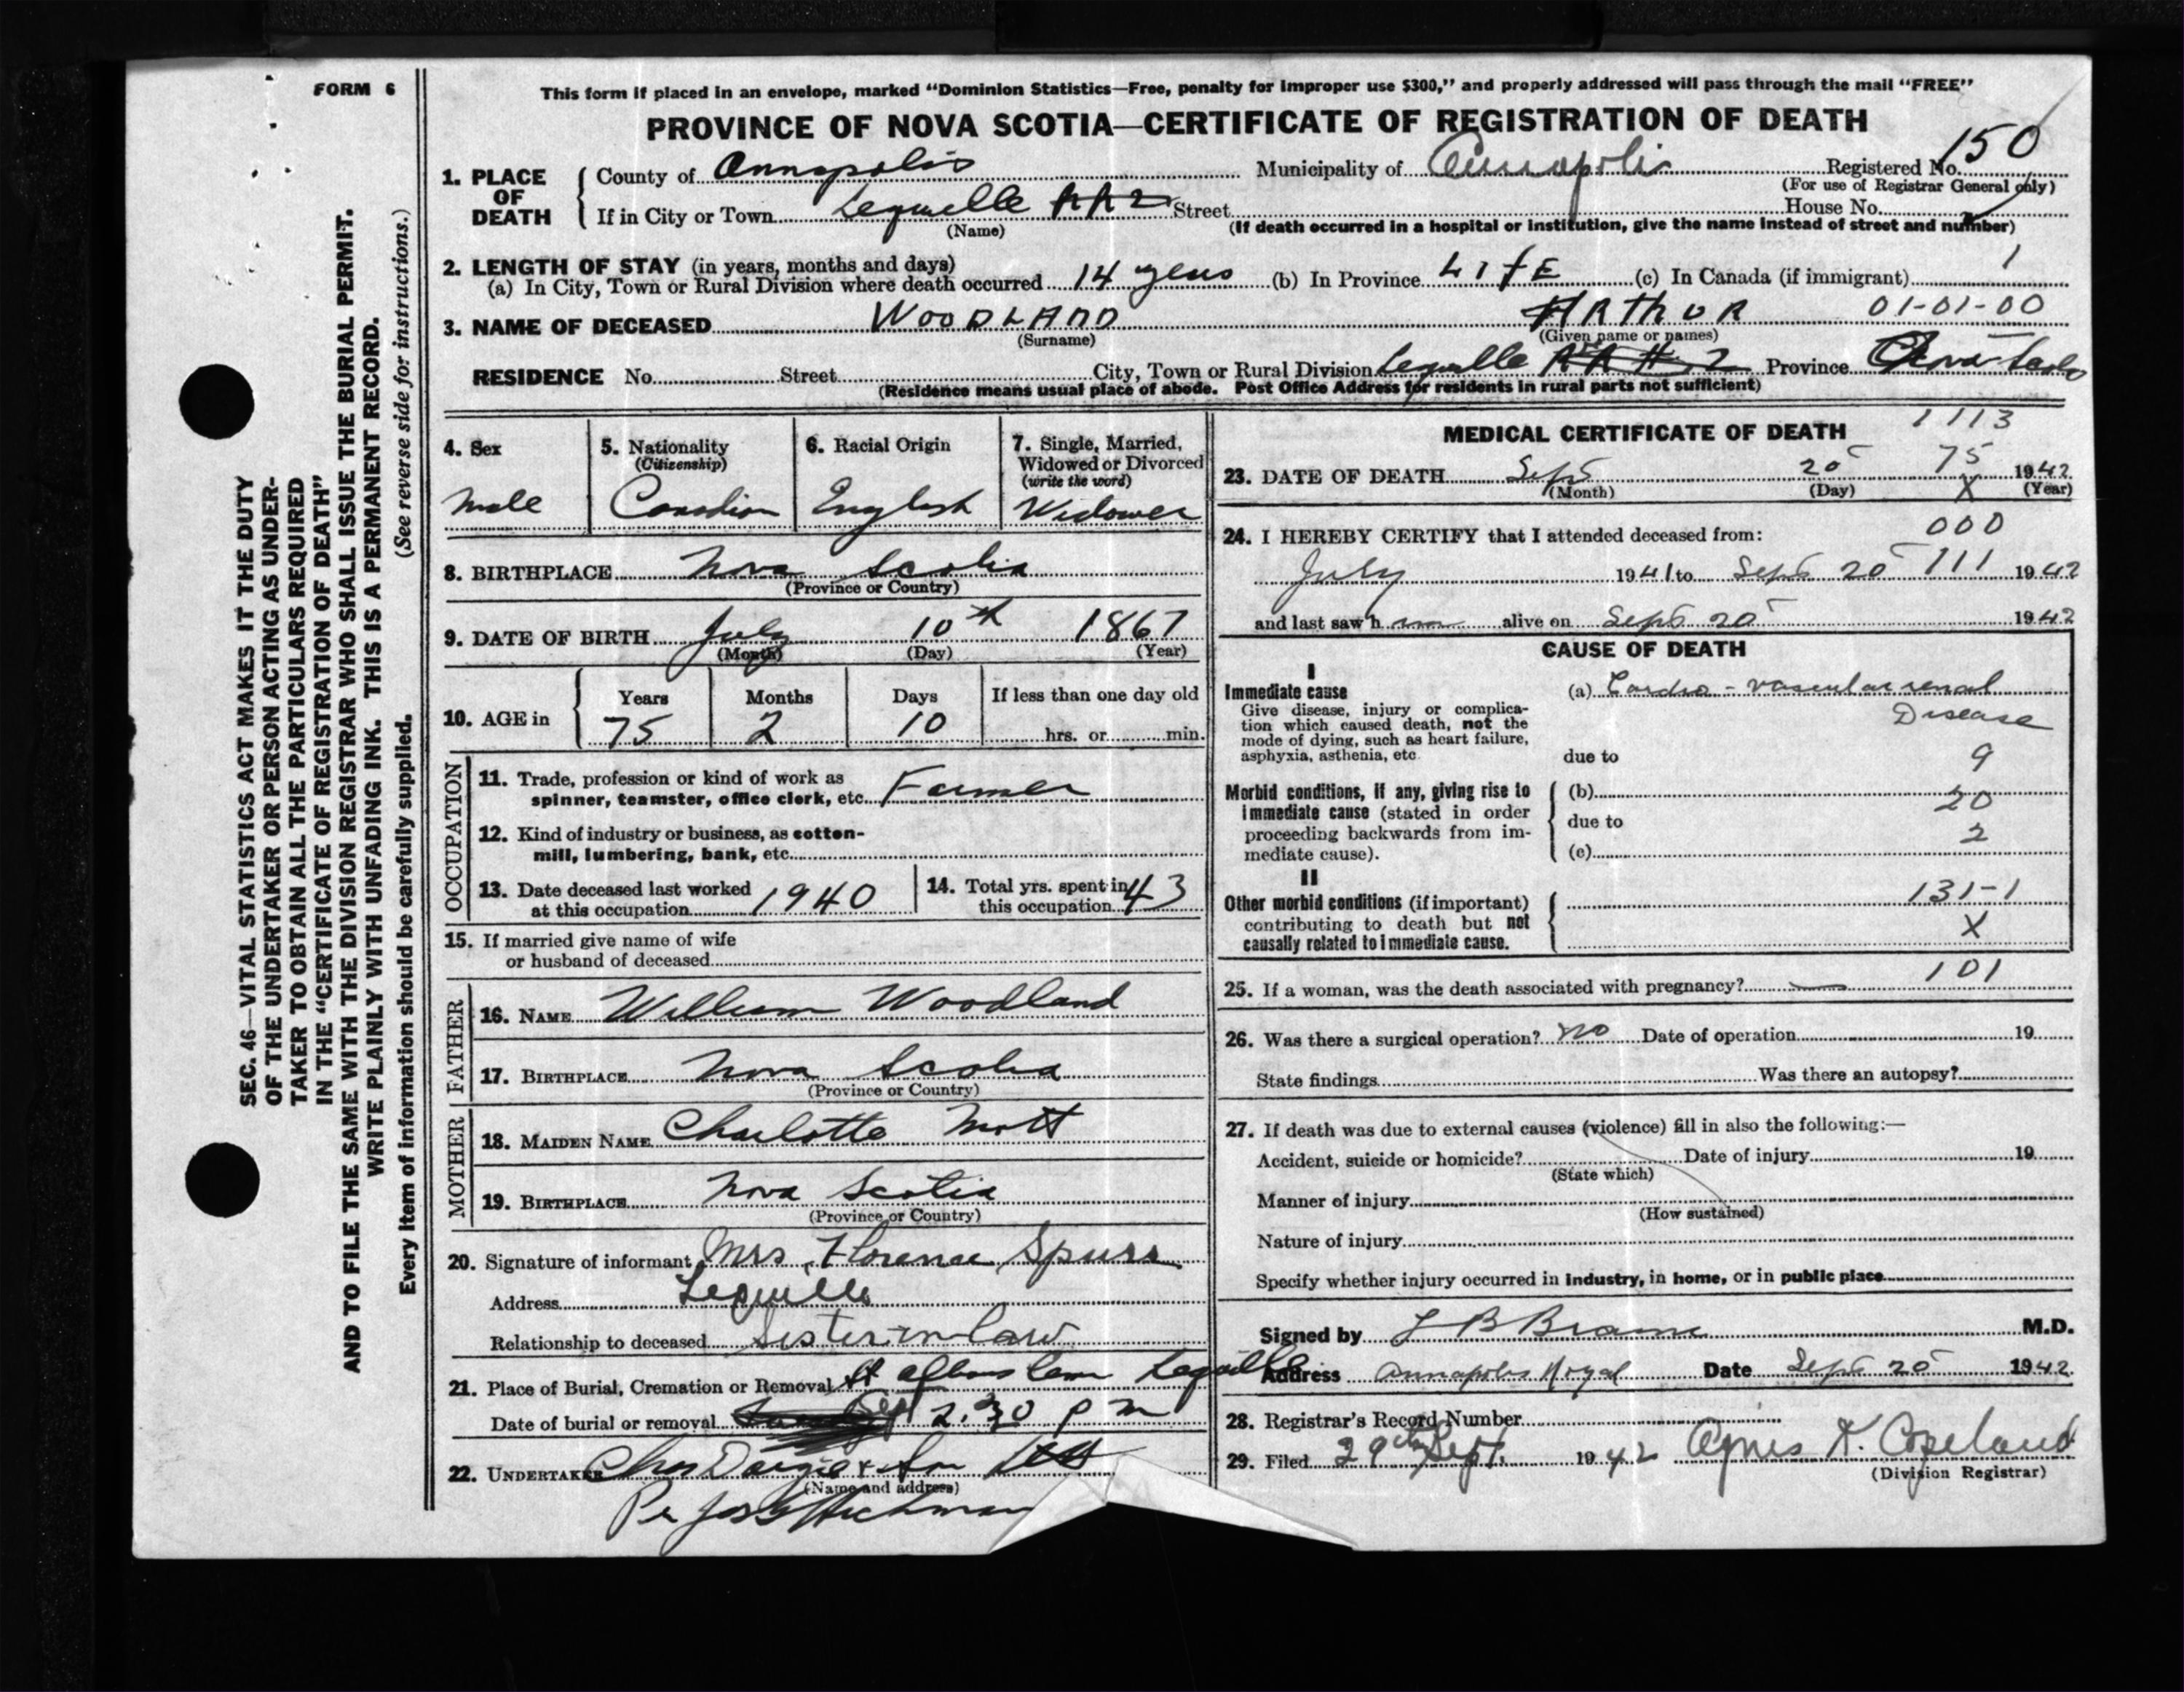 FORM 6
This form if placed in an envelope, marked "Dominion Statistics—Free, penalty for improper use $300," and properly addressed will pass through the mail "FREE"
PROVINCE OF NOVA SCOTIA—CERTIFICATE OF REGISTRATION OF DEATH
1. PLACE OF DEATH County of Annapolis Municipality of Annapolis Registered No. 150
(For use of Registrar General only)
If in City or Town Lequille RR2 Street House No.
(Name) (If death occurred in a hospital or institution, give the name instead of street and number)
2. LENGTH OF STAY (in years, months and days) 1
(a) In City, Town or Rural Division where death occurred 14 years (b) In Province LIfE (c) In Canada (if immigrant)
3. NAME OF DECEASED WOODLAND ARThUR 01-01-00
(Surname) (Given name or names)
RESIDENCE No. Street City, Town or Rural Division Lequille RR # 2 Province Nova Scotia
(Residence means usual place of abode. Post Office Address for residents in rural parts not sufficient)
4. Sex 5. Nationality 6. Racial Origin 7. Single, Married,
(Citizenship) Widowed or Divorced
(write the word)
Male Canadian English Widower
8. BIRTHPLACE Nova Scotia
(Province or Country)
9. DATE OF BIRTH July 10th 1867
(Month) (Day) (Year)
10. AGE in Years Months Days If less than one day old
75 2 10 hrs. or min.
OCCUPATION
11. Trade, profession or kind of work as
spinner, teamster, office clerk, etc. Farmer
12. Kind of industry or business, as cotton-
mill, lumbering, bank, etc.
13. Date deceased last worked
at this occupation 1940
14. Total yrs. spent in
this occupation 43
15. If married give name of wife
or husband of deceased
FATHER
16. NAME William Woodland
17. BIRTHPLACE Nova Scotia
(Province or Country)
MOTHER
18. MAIDEN NAME Charlotte Mott
19. BIRTHPLACE Nova Scotia
(Province or Country)
20. Signature of informant Mrs. Florence Spurr
Address Lequille
Relationship to deceased Sister in law
21. Place of Burial, Cremation or Removal St Albans Cem Lequille
Date of burial or removal 2.30 P M
22. UNDERTAKER Chas Dargie & Son Ltd
(Name and address)
Per
MEDICAL CERTIFICATE OF DEATH 1113
23. DATE OF DEATH Sept 20 75 1942
(Month) (Day) X (Year)
24. I HEREBY CERTIFY that I attended deceased from: 000
July 1941 to Sept 20 111 1942
and last saw him alive on Sept 20 1942
CAUSE OF DEATH
I
Immediate cause (a) Cardio-vascular renal
Disease
Give disease, injury or complica-
tion which caused death, not the
mode of dying, such as heart failure,
asphyxia, asthenia, etc. due to 9
Morbid conditions, if any, giving rise to (b) 20
immediate cause (stated in order due to
proceeding backwards from im- 2
mediate cause). (c)
II
Other morbid conditions (if important) 131-1
contributing to death but not X
causally related to immediate cause.
25. If a woman, was the death associated with pregnancy? — 101
26. Was there a surgical operation? No Date of operation 19
State findings Was there an autopsy?
27. If death was due to external causes (violence) fill in also the following:—
Accident, suicide or homicide? Date of injury 19
(State which)
Manner of injury
(How sustained)
Nature of injury
Specify whether injury occurred in industry, in home, or in public place
Signed by L B Braine M.D.
Address Annapolis Royal Date Sept 20 1942
28. Registrar's Record Number
29. Filed 29th Sept. 1942 Agnes K. Copeland
(Division Registrar)
SEC. 46—VITAL STATISTICS ACT MAKES IT THE DUTY
OF THE UNDERTAKER OR PERSON ACTING AS UNDER-
TAKER TO OBTAIN ALL THE PARTICULARS REQUIRED
IN THE "CERTIFICATE OF REGISTRATION OF DEATH"
AND TO FILE THE SAME WITH THE DIVISION REGISTRAR WHO SHALL ISSUE THE BURIAL PERMIT.
WRITE PLAINLY WITH UNFADING INK. THIS IS A PERMANENT RECORD.
Every item of information should be carefully supplied. (See reverse side for instructions.)